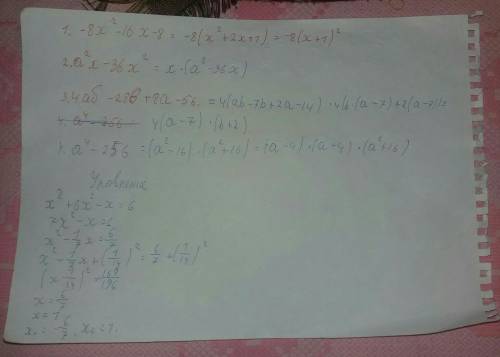 1. -8x²-16x-8 = -8(x²+2x+1) = -8(x+1)²
2. a²x-36x² = x·(a²-36x)
3. 4аб -28в +8a-56 = 4(ab-7b+2a-14) · 4(b·(a-7)+2(a-7))=
4. a⁴-256 4(a-7)·(b+2)
4. a⁴-256 = (a²-16)·(a²+16) = (a-4)·(a-4)·(a²+16)
x² +6x²-x=6
7x²-x=6
x²-1/7x=6/7
x²-1/7x+(1/14)²=6/7+(1/14)²
(x-1/14)²=169/196
x=6/7
x=1
x₁=-6/7, x₂=1.